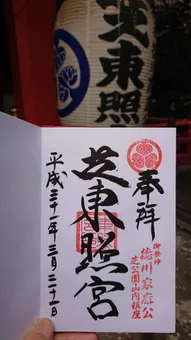 芝東照宮
奉拝
御祭神
徳川家康公
芝公園山内鎮座
芝東照宮
平成三十一年三月二十日